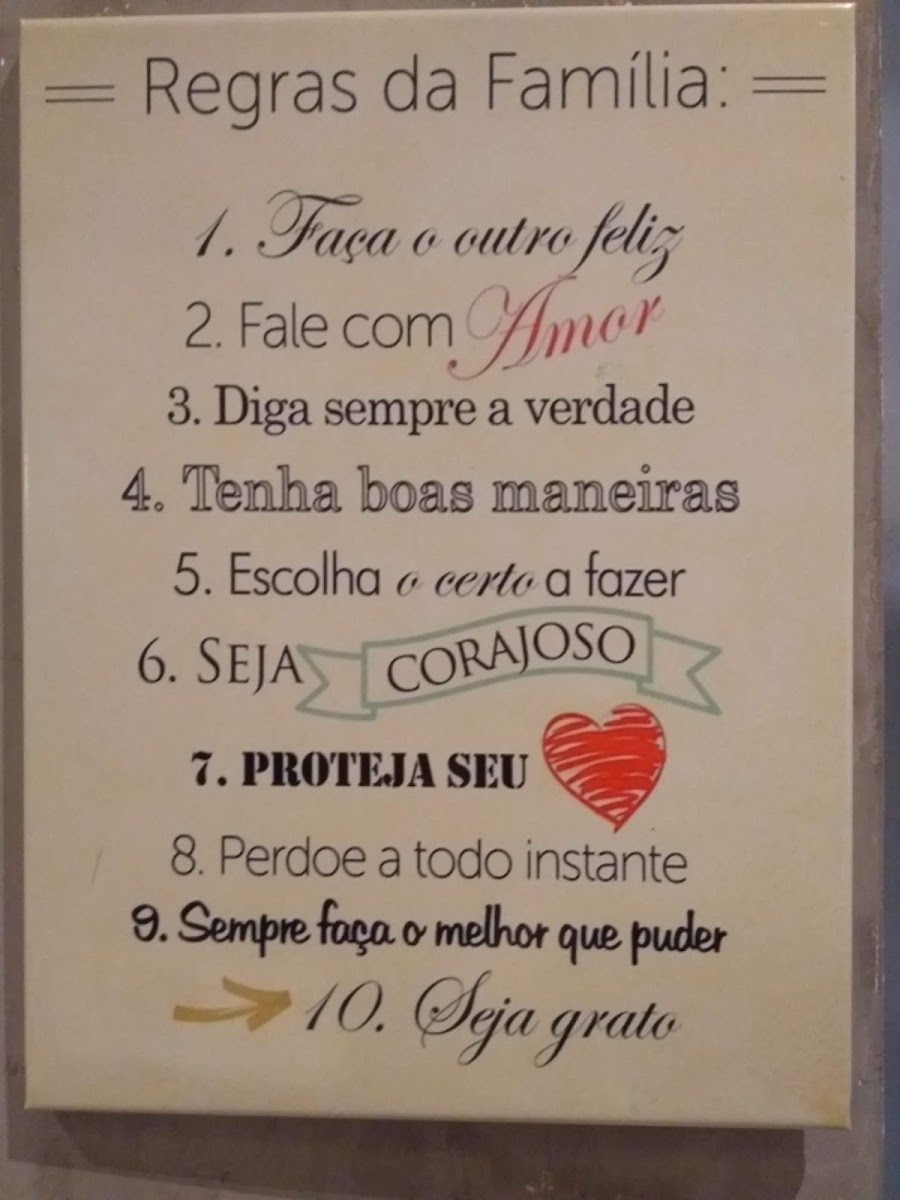 Regras da Família:
1. Faça o outro feliz
2. Fale com Amor
3. Diga sempre a verdade
4. Tenha boas maneiras
5. Escolha o certo a fazer
6. SEJA CORAJOSO
7. PROTEJA SEU
8. Perdoe a todo instante
9. Sempre faça o melhor que puder
10. Seja grato